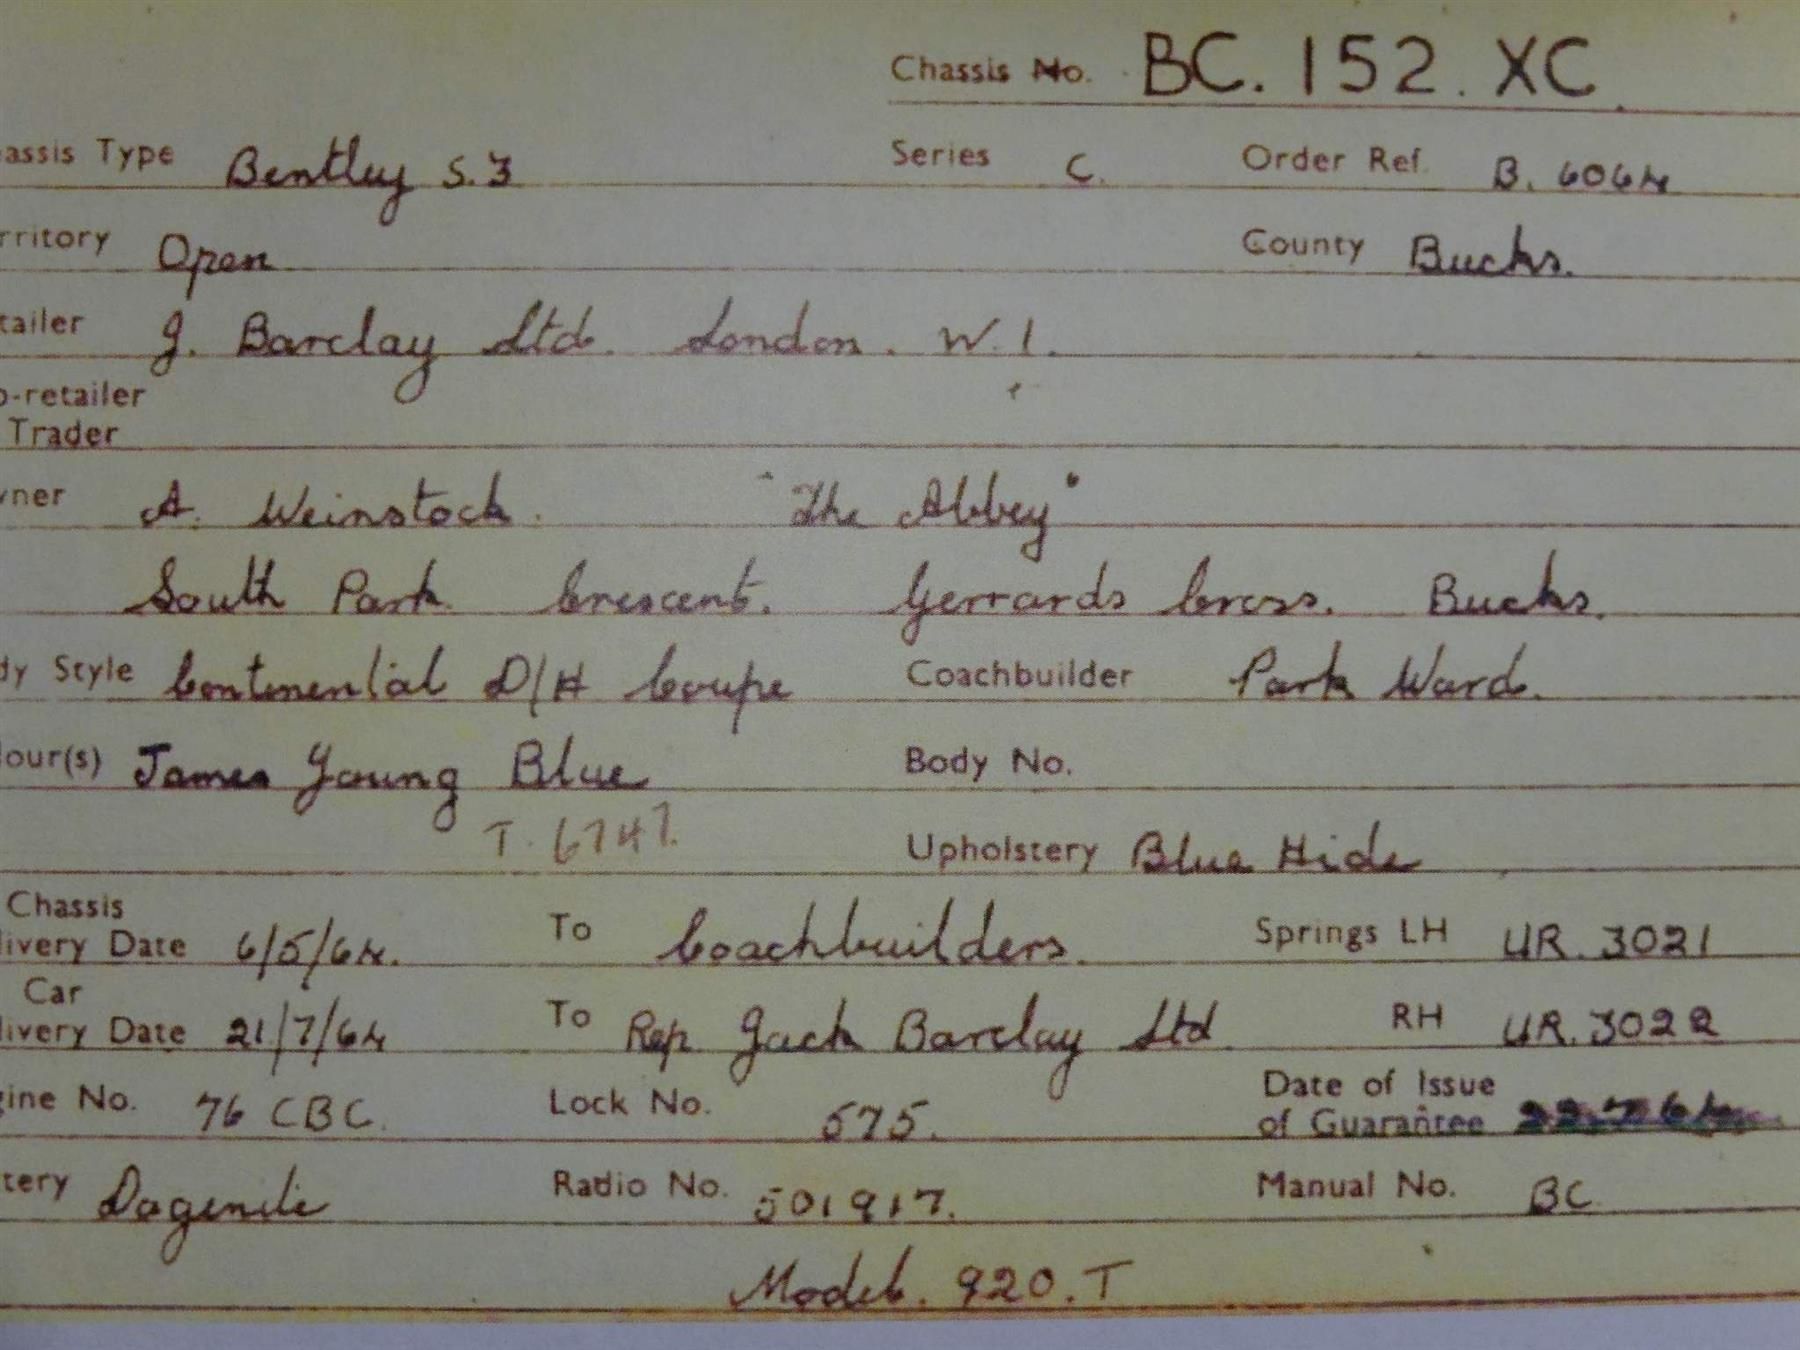 Chassis No. BC.152.XC
assis Type Bentley S.3 Series C. Order Ref. B.6064
rritory Open County Bucks.
tailer J. Barclay Ltd. London. W.1.
o-retailer
Trader
ner A. Weinstock. "The Abbey"
South Park Crescent. Gerrards Cross. Bucks.
dy Style Continental D/H Coupe Coachbuilder Park Ward.
lour(s) James Young Blue Body No.
T.6747. Upholstery Blue Hide
Chassis
livery Date 6/5/64. To Coachbuilders. Springs LH UR.3021
Car
livery Date 21/7/64 To Rep. Jack Barclay Ltd. RH UR.3022
gine No. 76 CBC. Lock No. 575. Date of Issue
of Guarantee 22.7.64
tery Dagenite Radio No. 501917. Manual No. BC.
Model. 920.T